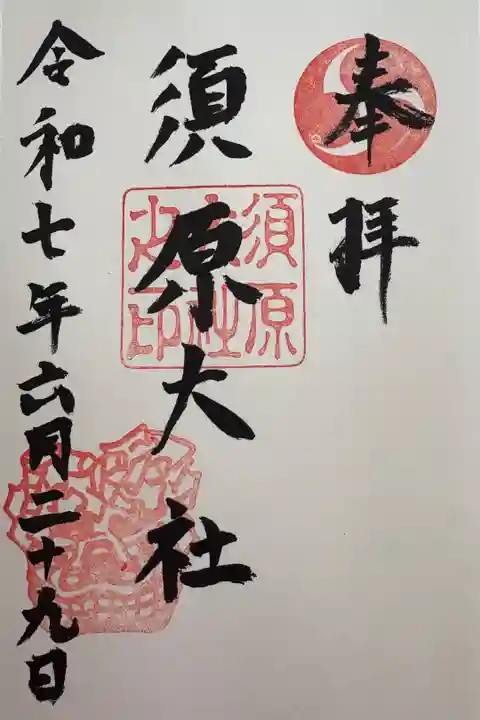 奉拝
須原大社
須原大社之印
令和七年六月二十九日